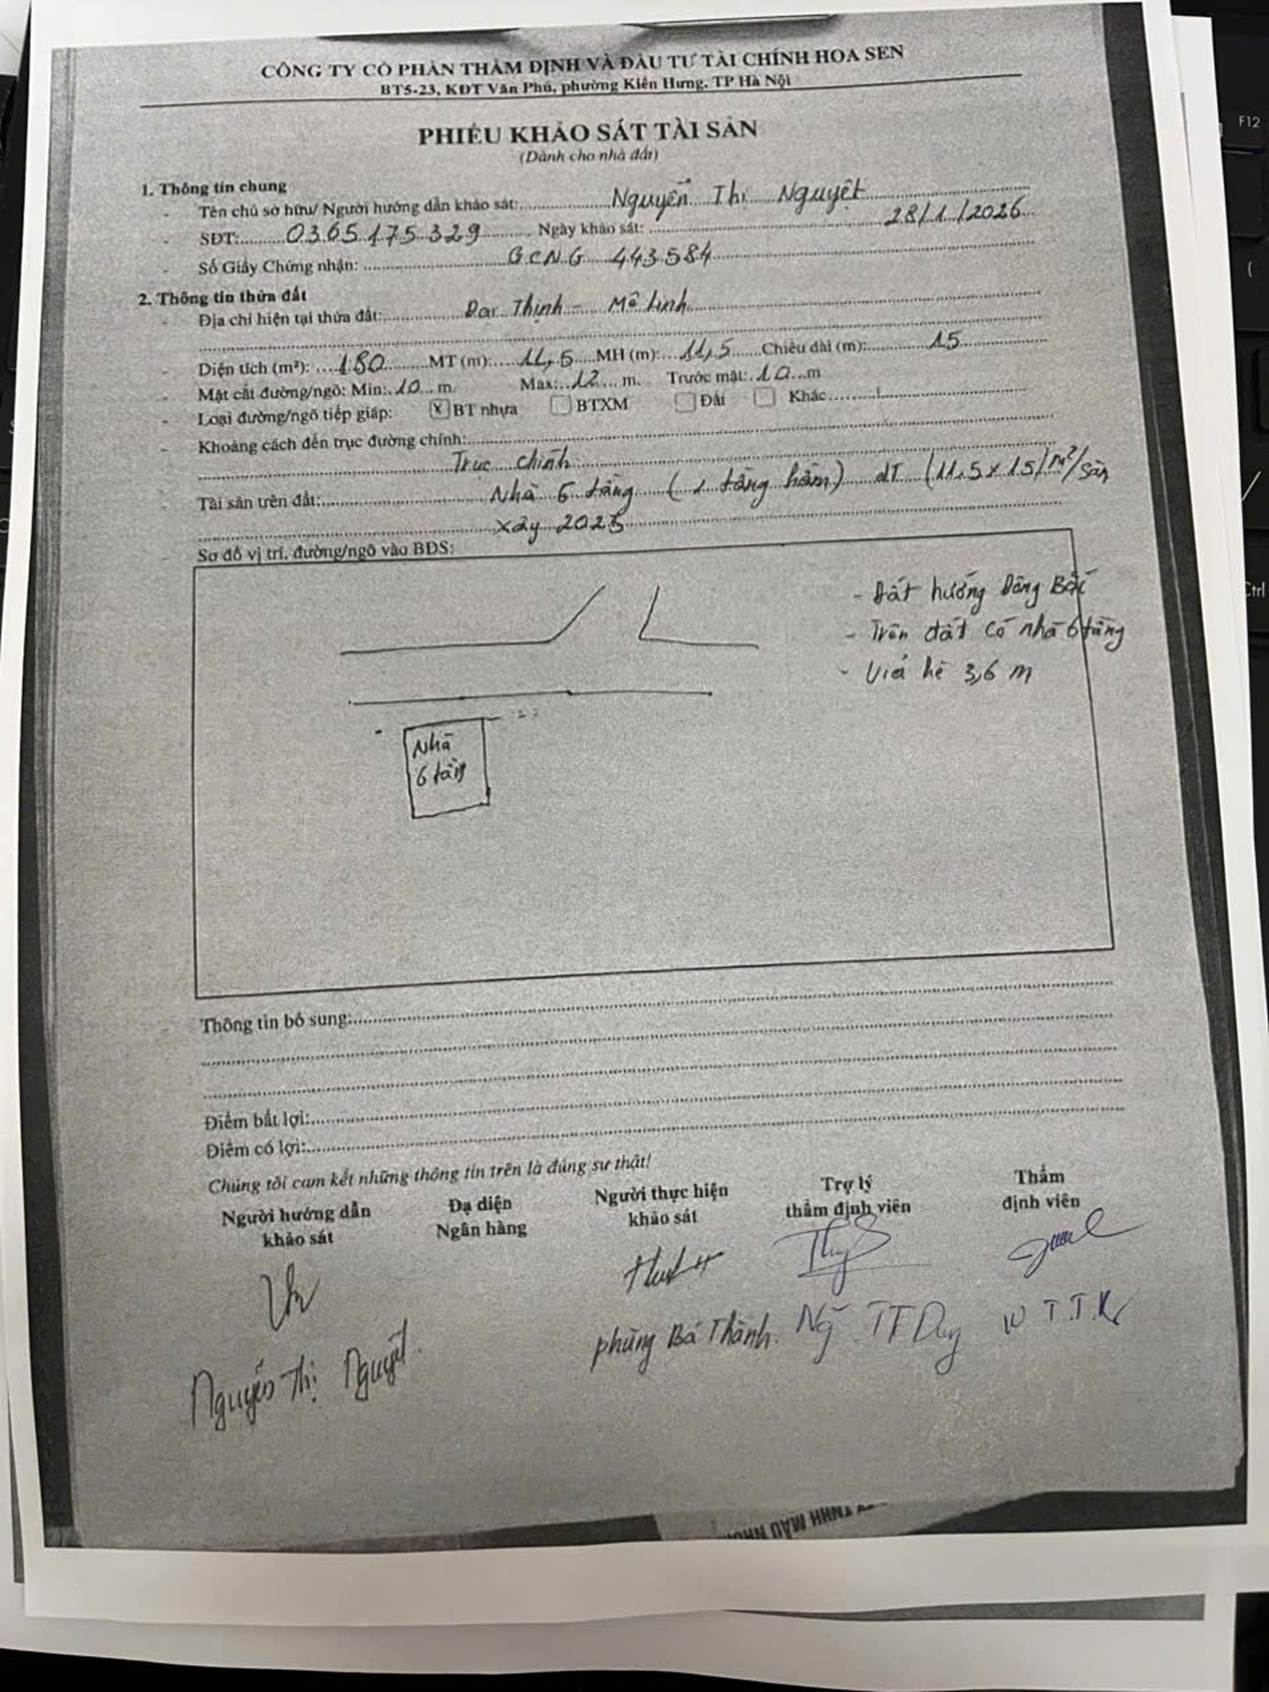 CÔNG TY CỔ PHẦN THẨM ĐỊNH VÀ ĐẦU TƯ TÀI CHÍNH HOA SEN
BT5-23, KĐT Văn Phú, phường Kiến Hưng, TP Hà Nội
PHIẾU KHẢO SÁT TÀI SẢN
(Dành cho nhà đất)
1. Thông tin chung
- Tên chủ sở hữu/ Người hướng dẫn khảo sát: Nguyễn Thị Nguyệt
- SĐT: 0365 175 329 Ngày khảo sát: 28/1/2026
- Số Giấy Chứng nhận: GCN G 443584
2. Thông tin thửa đất
- Địa chỉ hiện tại thửa đất: Đại Thịnh - Mê Linh
- Diện tích (m²): 180 MT (m): 11,5 MH (m): 11,5 Chiều dài (m): 15
- Mặt cắt đường/ngõ: Min: 10 m. Max: 12 m. Trước mặt: 10 m
- Loại đường/ngõ tiếp giáp: x BT nhựa BTXM Đất Khác
- Khoảng cách đến trục đường chính:
Trục chính
- Tài sản trên đất: Nhà 6 tầng (1 tầng hầm) dT (11,5 x 15) m²/sàn
xây 2025
- Sơ đồ vị trí, đường/ngõ vào BĐS:
- Đất hướng Đông Bắc
- Trên đất có nhà 6 tầng
- Vỉa hè 3,6 m
Nhà
6 tầng
- Thông tin bổ sung:
Điểm bất lợi:
Điểm có lợi:
Chúng tôi cam kết những thông tin trên là đúng sự thật!
Người hướng dẫn khảo sát
Đại diện Ngân hàng
Người thực hiện khảo sát
Trợ lý thẩm định viên
Thẩm định viên
Nguyễn Thị Nguyệt
Phùng Bá Thành